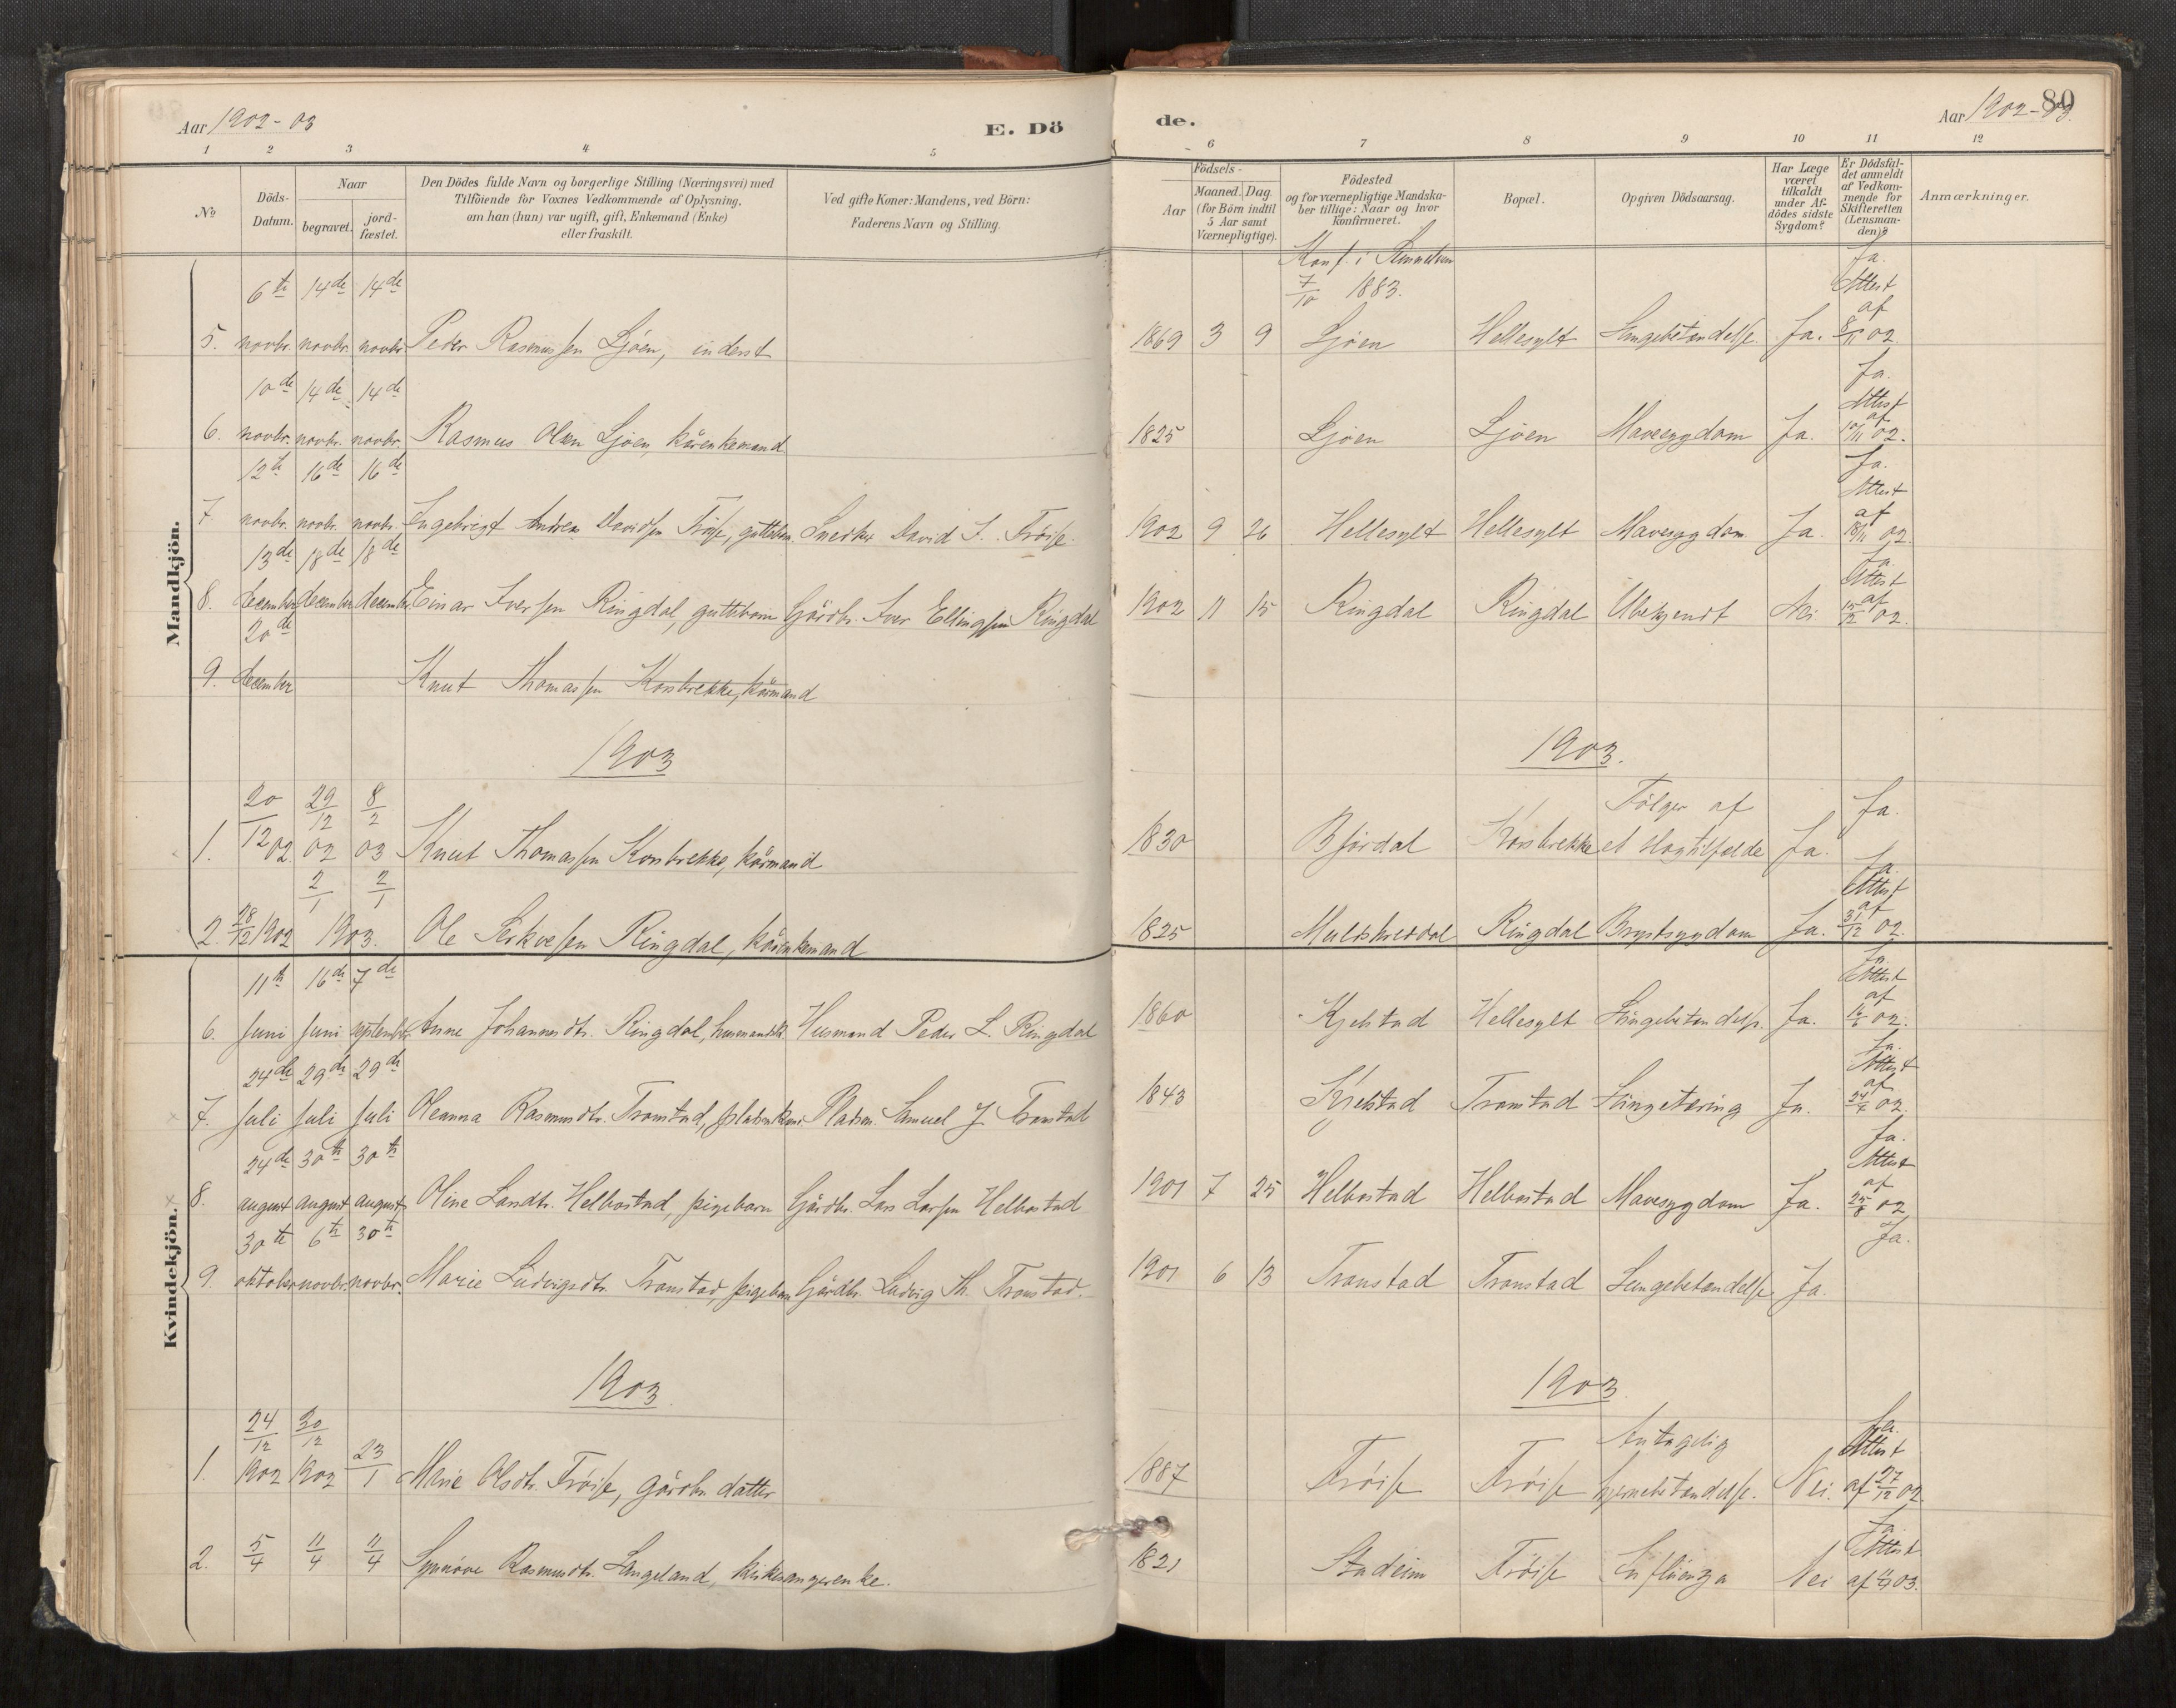 Aar 1902-03
E. Dö
de.
Aar 1902-03.
80
1 2 3 4 5 6 7 8 9 10 11 12
№
Döds-Datum.
Naar
begravet.
jord-fæstet.
Den Dödes fulde Navn og borgerlige Stilling (Næringsvei) med
Tilföiende for Voxnes Vedkommende af Oplysning,
om han (hun) var ugift, gift, Enkemand (Enke)
eller fraskilt.
Ved gifte Koner: Mandens, ved Börn:
Faderens Navn og Stilling.
Födsels-
Aar
Maaned. Dag.
(for Börn indtil
5 Aar samt
Værnepligtige).
Födested
og for værnepligtige Mandska-
ber tillige: Naar og hvor
konfirmeret.
Bopæl.
Opgiven Dödsaarsag.
Har Læge
været
tilkaldt
under Af-
dödes sidste
Sygdom?
Er Dödsfal-
det anmeldt
af Vedkom-
mende for
Skifteretten
(Lensman-
den)?
Anmærkninger.
Mandkjön.
Konf. i
6te 14de 14de 7/10 1883. Ja. Attest af
5. novbr. novbr. novbr. Peder Rasmussen Ljöen, inderst 1869 3 9 Ljöen Hellesylt Lungebetændelse. Ja. 8/11 02.
10de 14de 14de Ja. Attest af
6. novbr. novbr. novbr. Rasmus Olsen Ljöen, kårenkemand 1825 Ljöen Ljöen Mavesygdom Ja. 10/11 02.
12te 16de 16de Ja. Attest af
7. novbr. novbr. novbr. Ingebrigt Andreas Davidsen Fröise, guttebarn. Snedker David J. Fröise. 1902 9 26 Hellesylt Hellesylt Mavesygdom. Ja. 13/11 02.
13de 18de 18de Ja. Attest af
8. december december december Einar Iversen Ringdal, guttebarn Gårdbr. Iver Ellingsen Ringdal 1902 11 15 Ringdal Ringdal Ubekjendt Nei. 15/12 02.
20de
9. december Knut Thomassen Korsbrekke, kårmand
1903
1903.
20 29/12 8/2 Fölger af Ja.
1. 12 02. 02 03 Knut Thomassen Korsbrekke, kårmand 1830 Björdal Korsbrekke et slagtilfelde Ja.
2/1 2/1 Ja. Attest af
2. 28/12 1902 1903. Ole Serkvesen Ringdal, kårenkemand 1825 Muldskreddal Ringdal Brystsygdom Ja. 31/12 02.
Kvindekjön.
11te 16de 7de Ja. Attest af
6. juni juni september Anne Johannesdtr. Ringdal, husmandsk. Husmand Peder L. Ringdal 1860 Kjelstad Hellesylt Lungebetændelse. Ja. 16/6 02.
24de 29de 29de Ja. Attest af
7. juli juli juli Oleanna Rasmusdtr. Tronstad, Pladsm. Samuel J. Tronstad 1843 Kjelstad Tronstad Lungetæring Ja. 24/7 02.
24de 30te 30te Ja. Attest af
8. august august august Oline Larsdtr. Helbostad, pigebarn Gårdbr. Lars Larsen Helbostad 1901 7 25 Helbostad Helbostad Mavesygdom Ja. 25/8 02
30te 6te 30te Ja.
9. oktober novbr. novbr. Marie Ludvigsdtr. Tronstad, pigebarn Gårdbr. Ludvig Th. Tronstad. 1901 6 13 Tronstad Tronstad Lungebetændelse Ja.
1903
1903.
24/12 30/12 Antagelig Ja. Attest
1. 1902 1902 23/1 Marie Olsdtr. Fröise, gårdbr. datter 1887 Fröise Fröise hjernebetændelse. Nei. af 27/12 02
Ja. Attest
2. 5/4 11/4 11/4 Synnöve Rasmusdtr. Langeland, kirkesangerenke. 1821 Stadeim Fröise Influenza Nei af 03.